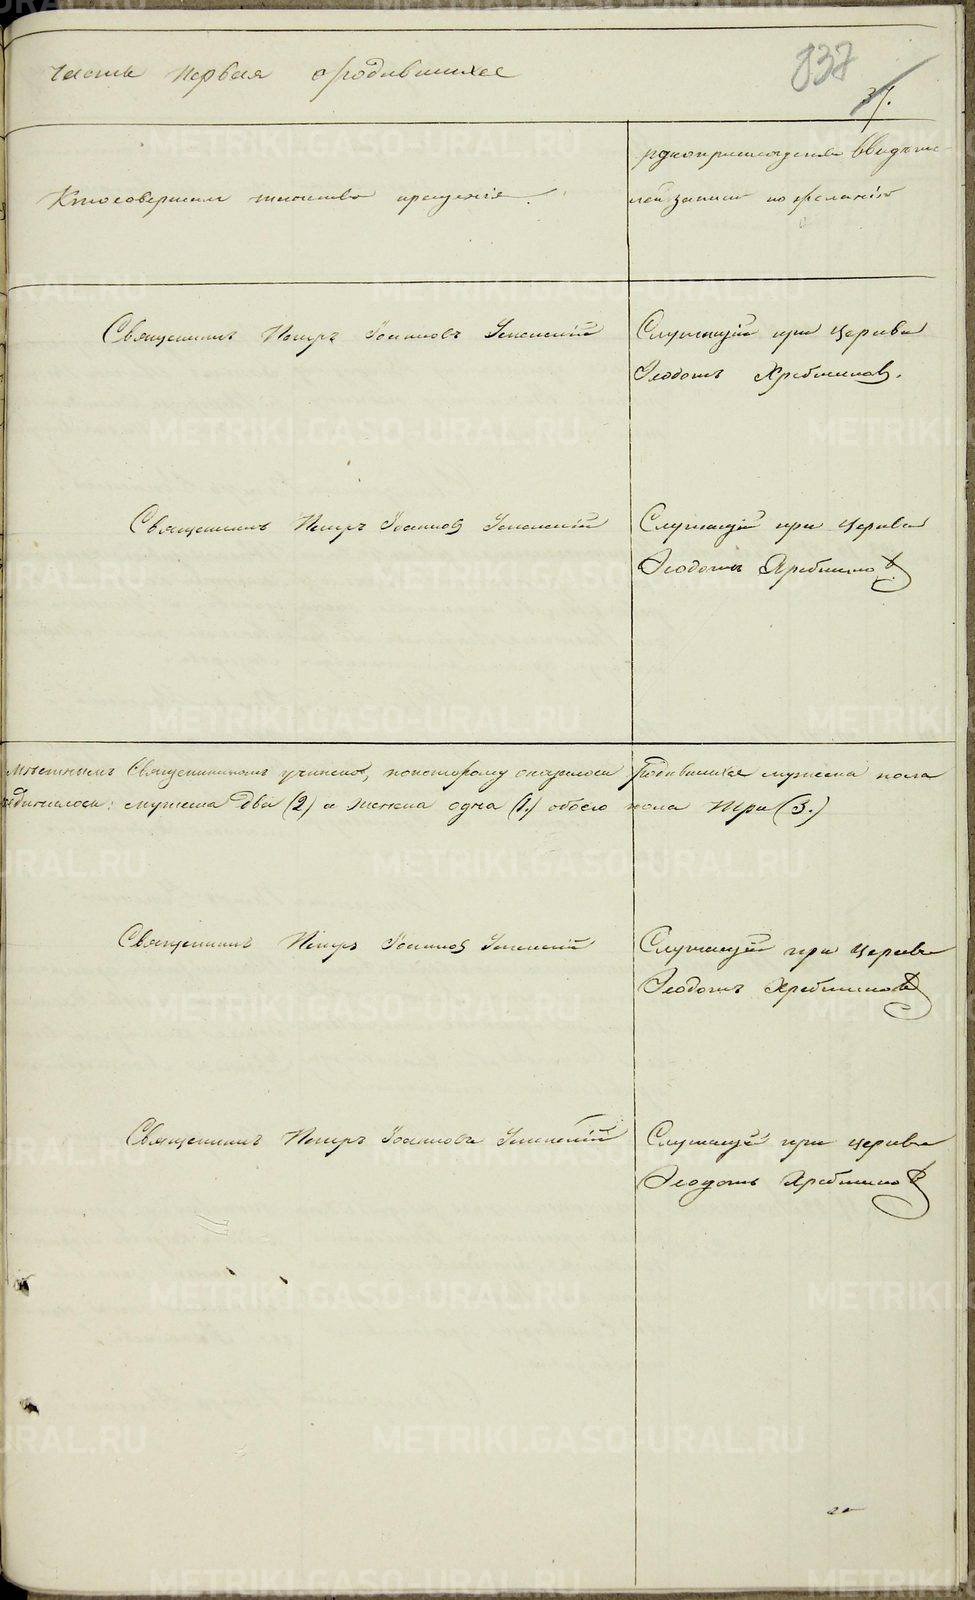 Часть первая о родившихся
837
37.
Кто совершал таинство крещенія.
рукоприкладство свидѣте-
лей записи по желанію
Священникъ Петръ Іоанновъ Успенскій
Служащій при церкви
Ѳеодотъ Хребтиковъ.
Священникъ Петръ Іоанновъ Успенскій
Служащій при церкви
Ѳеодотъ Хребтиковъ
мѣстнымъ Священникомъ учинено, по которому оказалось родившихся мужеска пола
мужеска два (2) и женска одна (1.) обоего пола три (3.)
Священникъ Петръ Іоанновъ Успенскій
Служащій при церкви
Ѳеодотъ Хребтиковъ
Священникъ Петръ Іоанновъ Успенскій
Служащій при церкви
Ѳеодотъ Хребтиковъ
METRIKI.GASO-URAL.RU